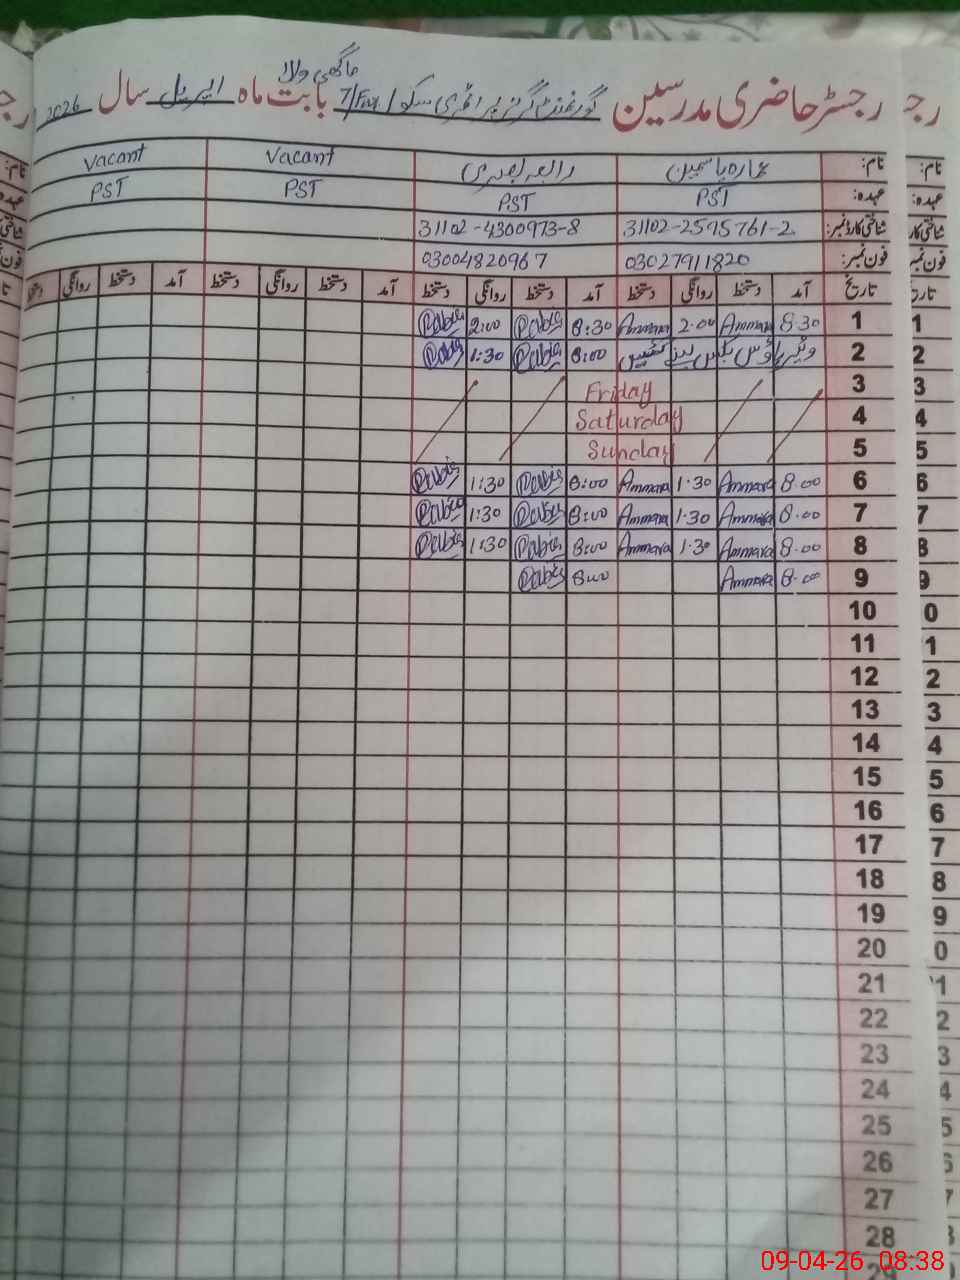 رجسٹر حاضری مدرسین گورنمنٹ گرلز پرائمری سکول 7/Fw ماگھی والا بابت ماہ اپریل سال 2026
نام: عمارہ یاسمین رابعہ بصری Vacant Vacant
عہدہ: PST PST PST PST
شناختی کارڈ نمبر: 31102-2595761-2 31102-4300973-8
فون نمبر: 03027911820 03004820967
تاریخ آمد دستخط روانگی دستخط آمد دستخط روانگی دستخط آمد دستخط روانگی دستخط آمد دستخط روانگی دستخط
1 8:30 Ammara 2.00 Ammara 8:30 Rabia 2:00 Rabia
2 8:00 Rabia 1:30 Rabia
3 Friday
4 Saturday
5 Sunday
6 8.00 Ammara 1.30 Ammara 8:00 Rabia 1:30 Rabia
7 8.00 Ammara 1.30 Ammara 8:00 Rabia 1:30 Rabia
8 8.00 Ammara 1.30 Ammara 8:00 Rabia 1:30 Rabia
9 8.00 Ammara 8:00 Rabia
10
11
12
13
14
15
16
17
18
19
20
21
22
23
24
25
26
27
28
29
09-04-26 08:38